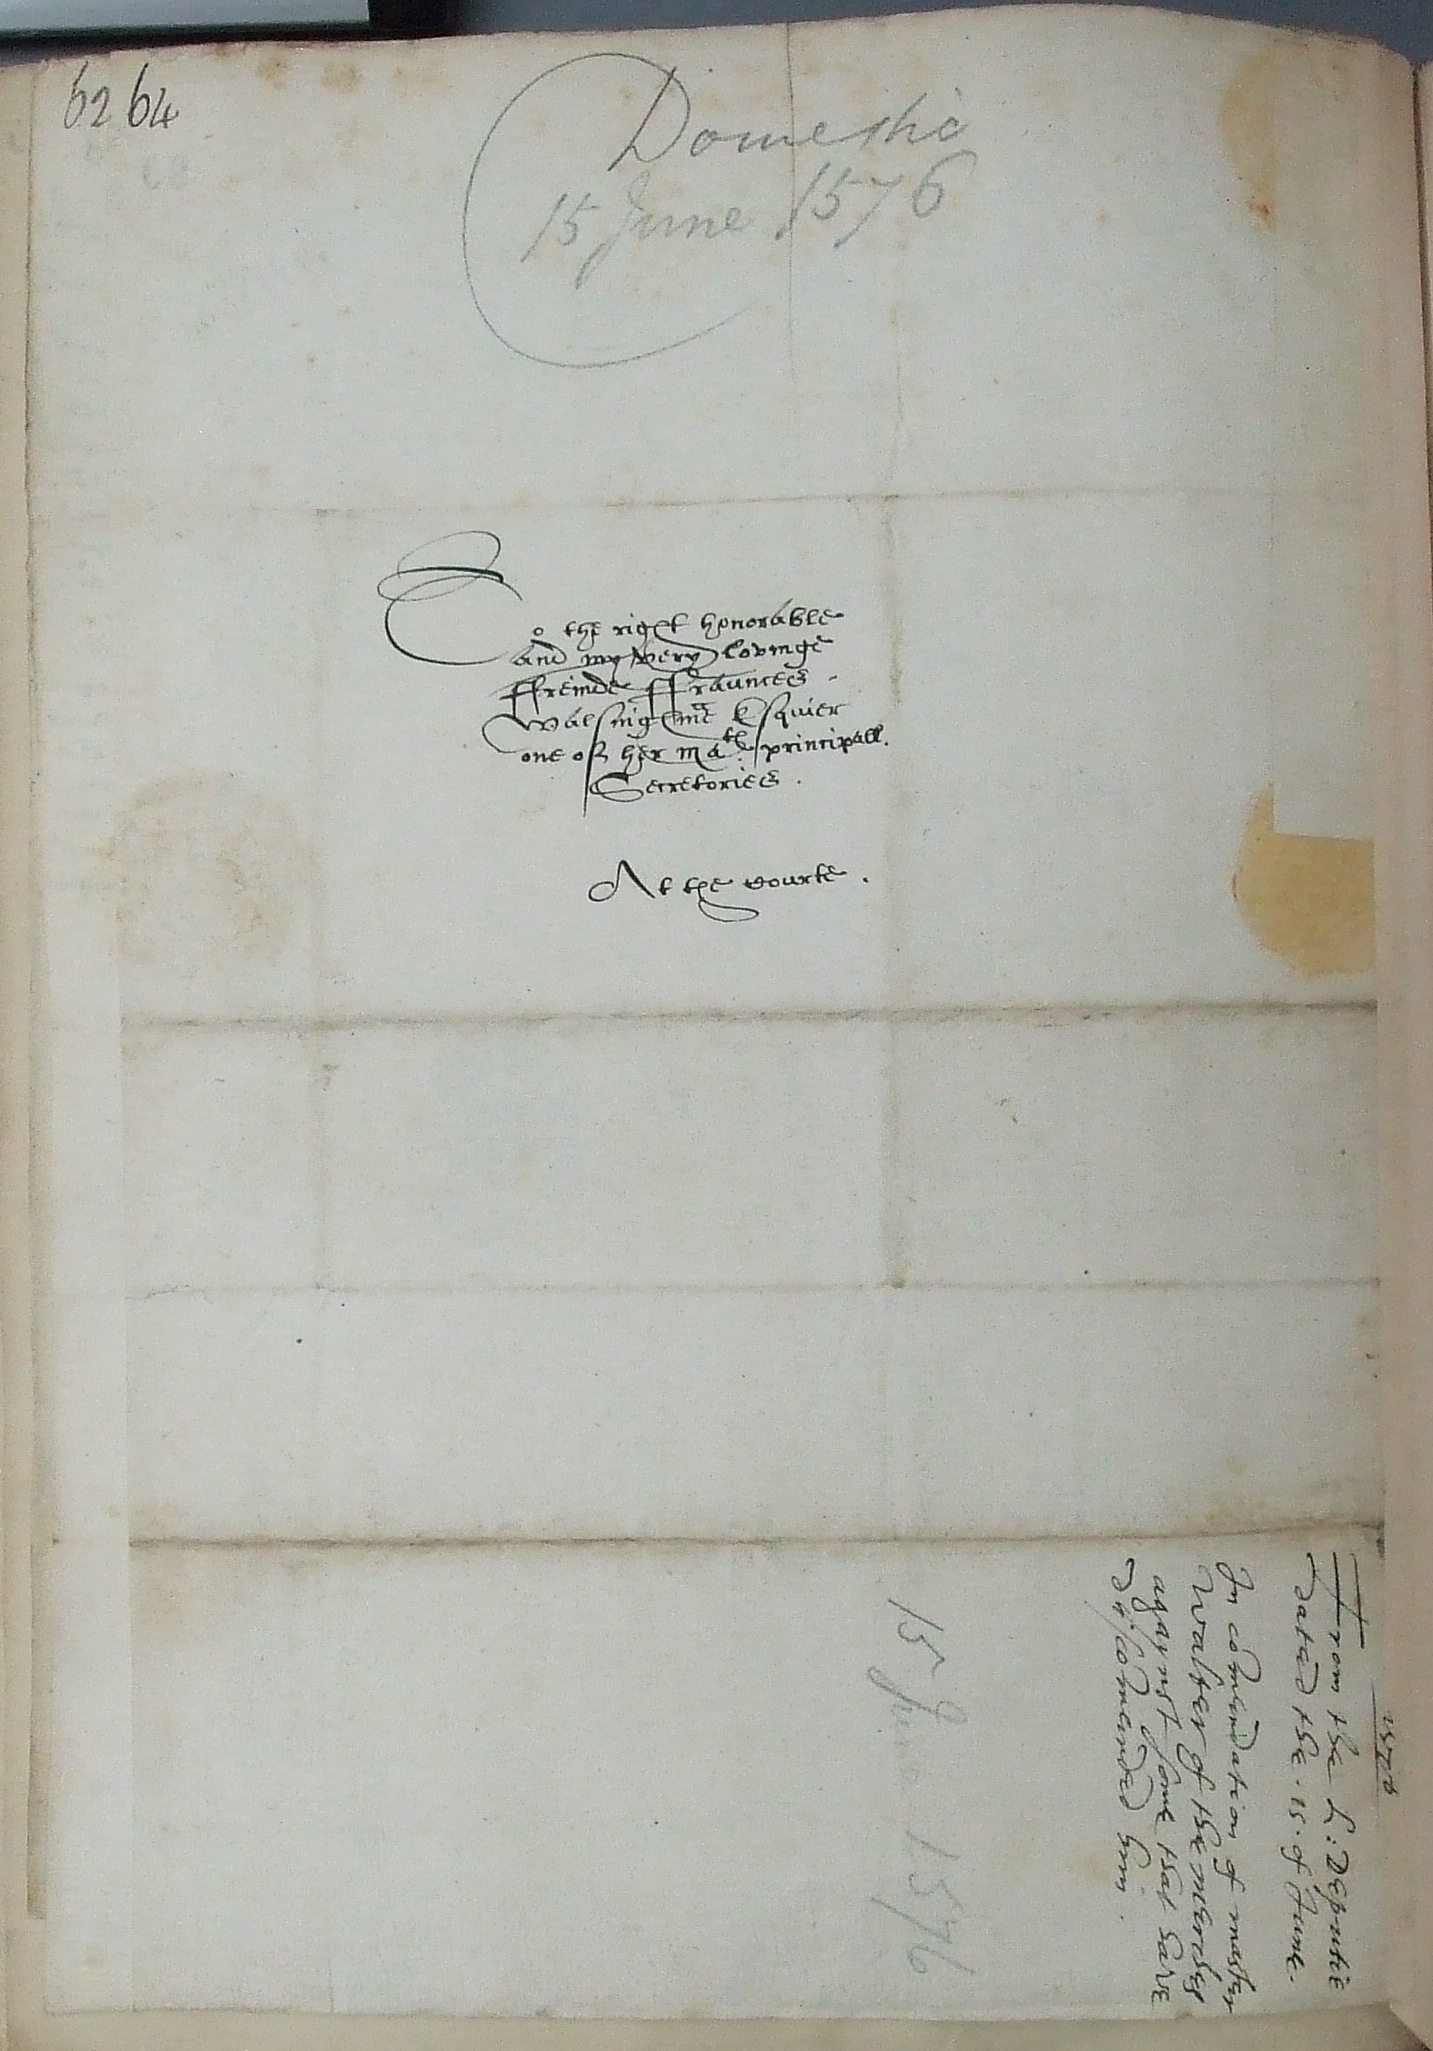 62 64
Domestic
15 June 1576
To the right honorable
and my very lovinge
ffreinde ffraunces
Walsinghme Esquier
one of her Ma^tes principall
Secretories.
At the Courte.
15 June 1576
1576
From the L: Deputie
dated the .15. of June.
In comendation of master
Walter of the merches
agaynst some that have
discomended him.